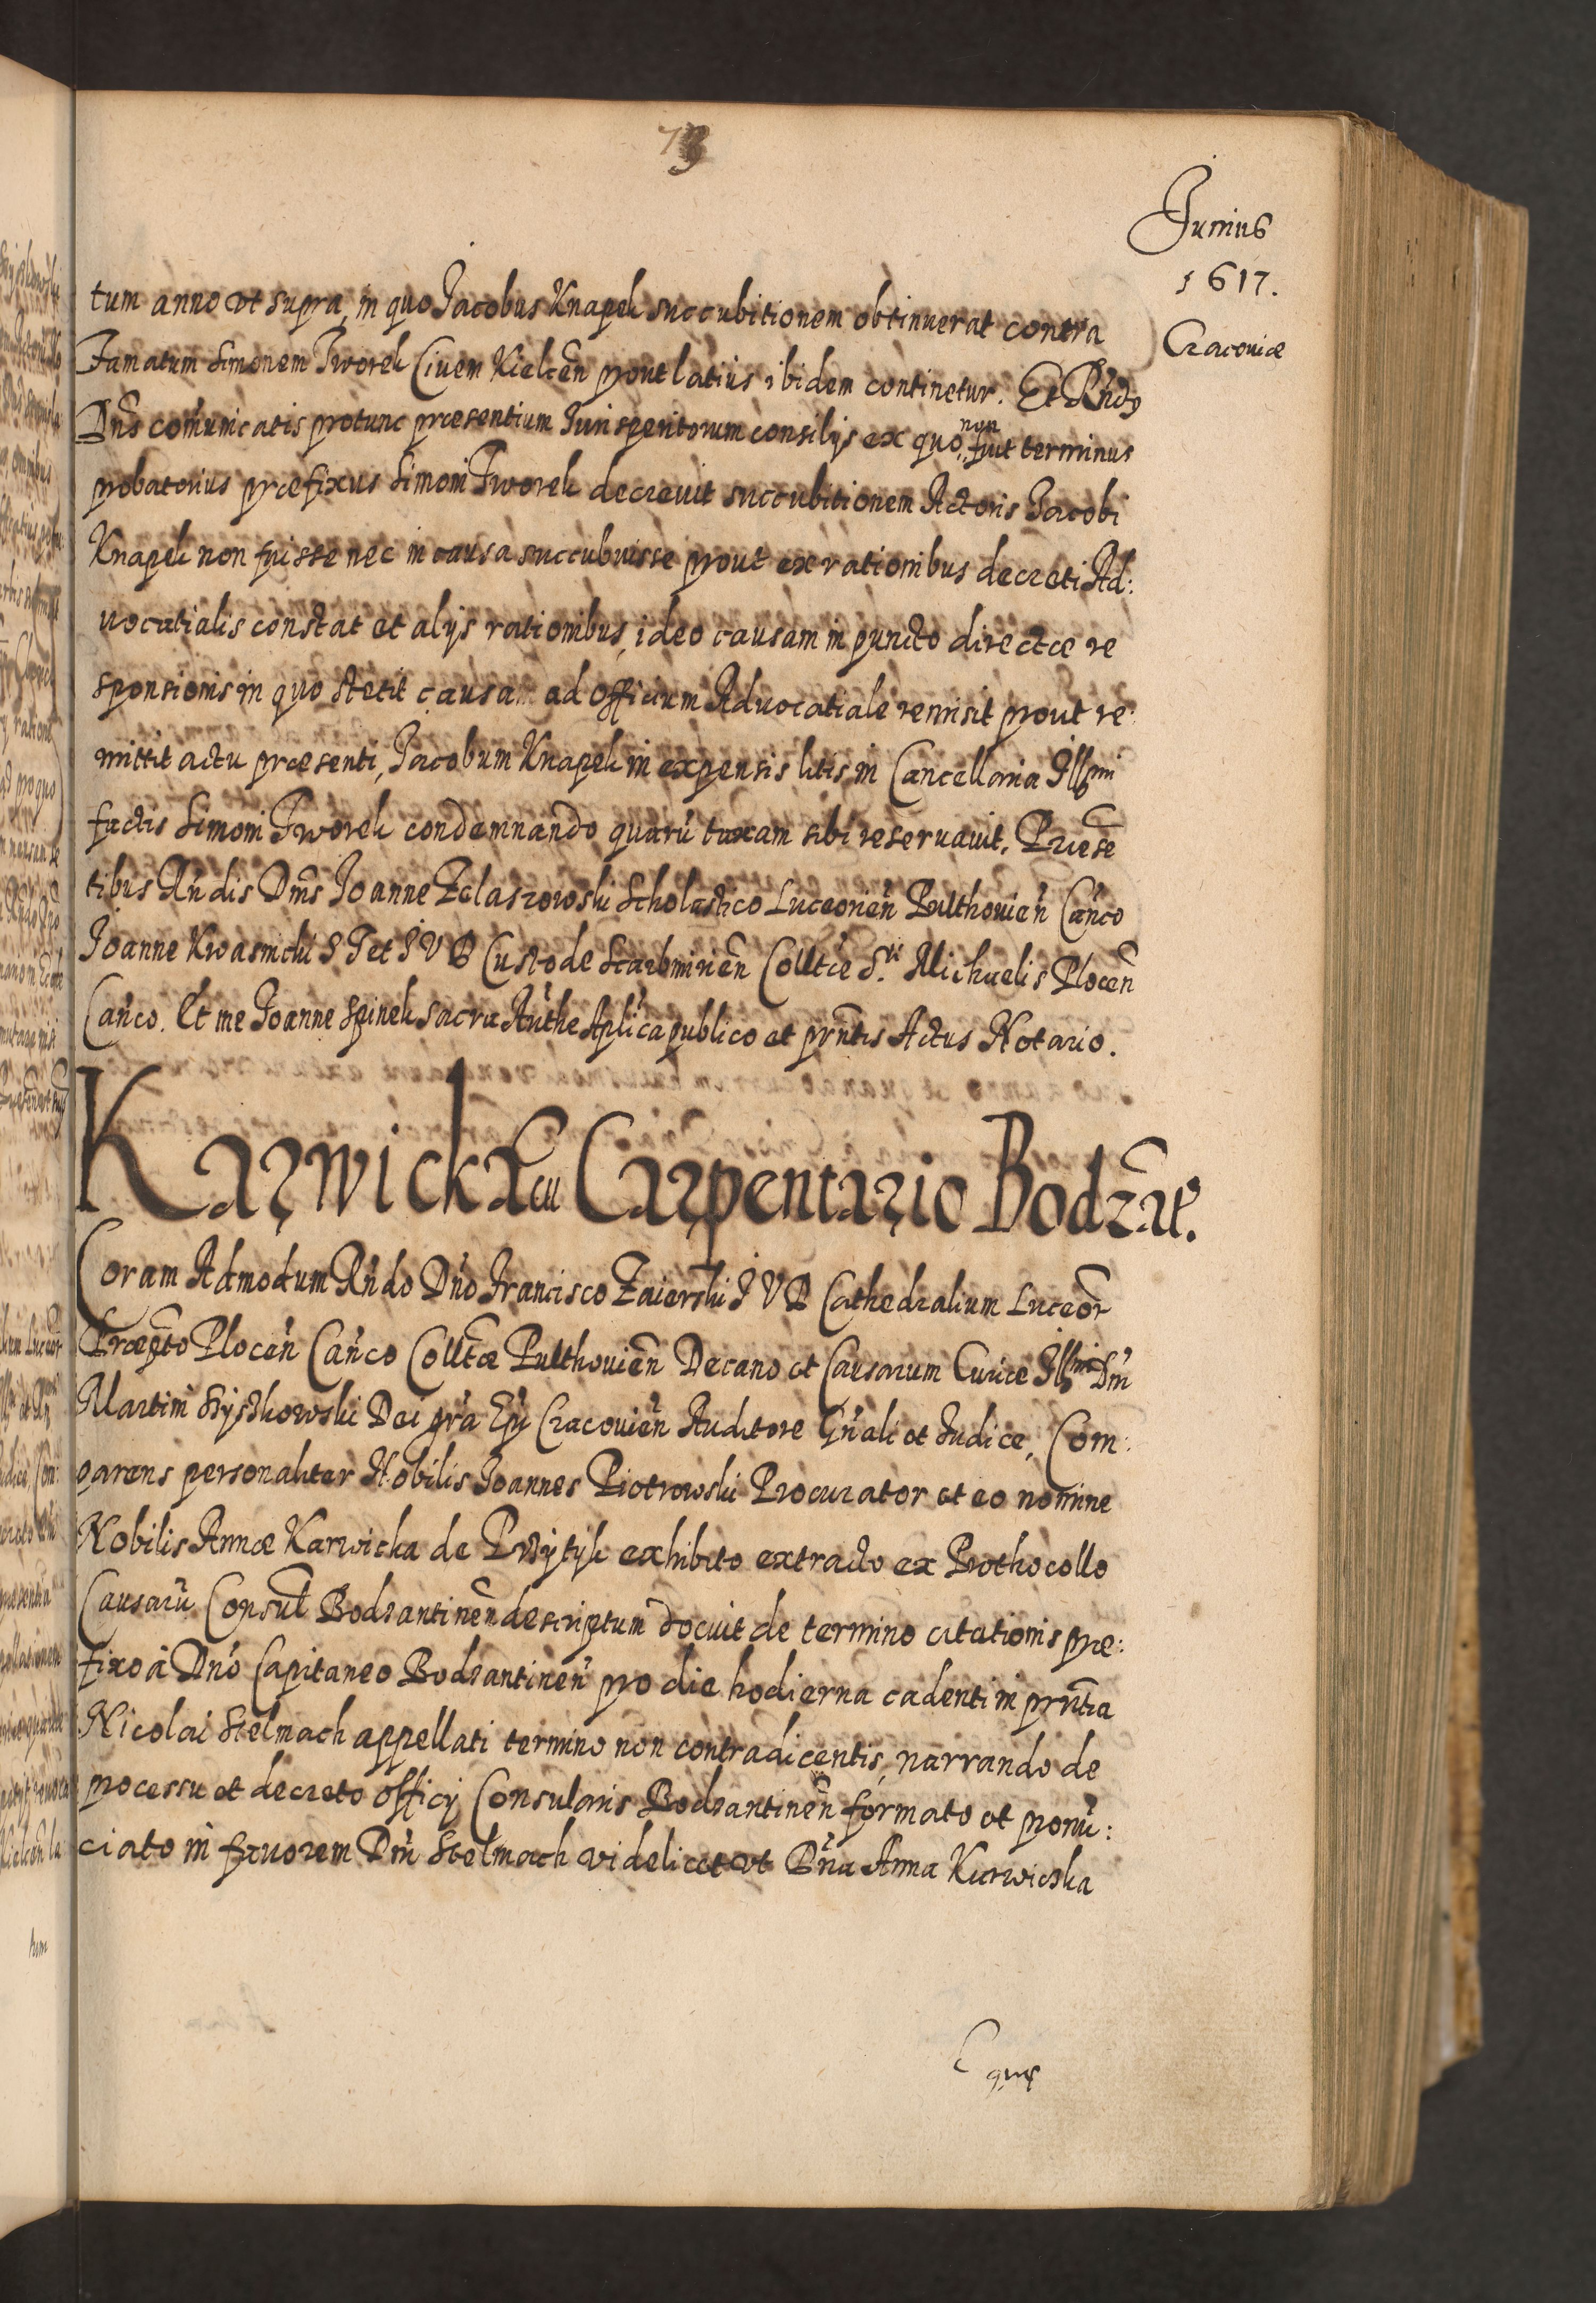 73
Junius
1617.
Cracoviæ
tum anno vt supra, in quo Jacobus Knapek succubitionem obtinuerat contra
Famatum Simonem Tworek Ciuem Kielcen̄ prout latius ibidem continetur. Et Rn̄dus
Dn̄s com̄unicatis protunc præsentium Jurisperitorum consilijs ex quo non fuit terminus
probatorius præfixus Simoni Tworek decreuit succubitionem Actoris Jacobi
Knapek non fuisse nec in causa succubuisse prout ex rationibus decreti Ad:
uocatialis constat et alijs rationibus, ideo causam in puncto directæ re
sponsionis in quo stetit causam ad officium Aduocatiale remisit prout re:
mittit actu præsenti, Jacobum Knapek in expensis litis in Cancellaria Illmi
factis Simoni Tworek condemnando quarū taxam sibi reseruauit. Præsē
tibus Rn̄dis Dn̄is Joanne Zelaszowski Scholastico Luceorien̄ Pulthouien̄ Can̄co
Joanne Kwasnicki S T et J V D Custode Scarbimirien̄ Colltæ S.ti Michaelis Plocen̄
Can̄co. Et me Joanne Spinek Sacra Auth͞e Apl͞ica publico et pr͞ntis Actus Notario.
Karwicka cū Carpentario Bodzāt.
Coram Admodum Rn̄do Dn̄o Francisco Zaierski J V D Cathedralium Luceor̄
Præpto Plocen̄ Can̄co Colltæ Pulthouien̄ Decano et Causarum Curiæ Illmi Dn̄i
Martini Szyszkowski Dei gr̄a Ep̄i Cracouien̄ Auditore Gn̄ali et Judice, Com:
parens personaliter Nobilis Joannes Piotrowski Procurator et eo nomine
Nobilis Annæ Karwicka de Przytyk exhibito extracto ex Prothocollo
Causarū Consul̄ Bodzantinen̄ descriptum docuit de termino citationis præ:
fixo à Dn̄o Capitaneo Bodzantinen̄ pro die hodierna cadenti in pr͞ntia
Nicolai Stelmach appellati termino non contradicentis, narrando de
processu et decreto officij Consularis Bodzantinen̄ formato et pronū:
ciato in fauorem Dn̄i Stelmach videlicet vt Dn̄a Anna Karwicka